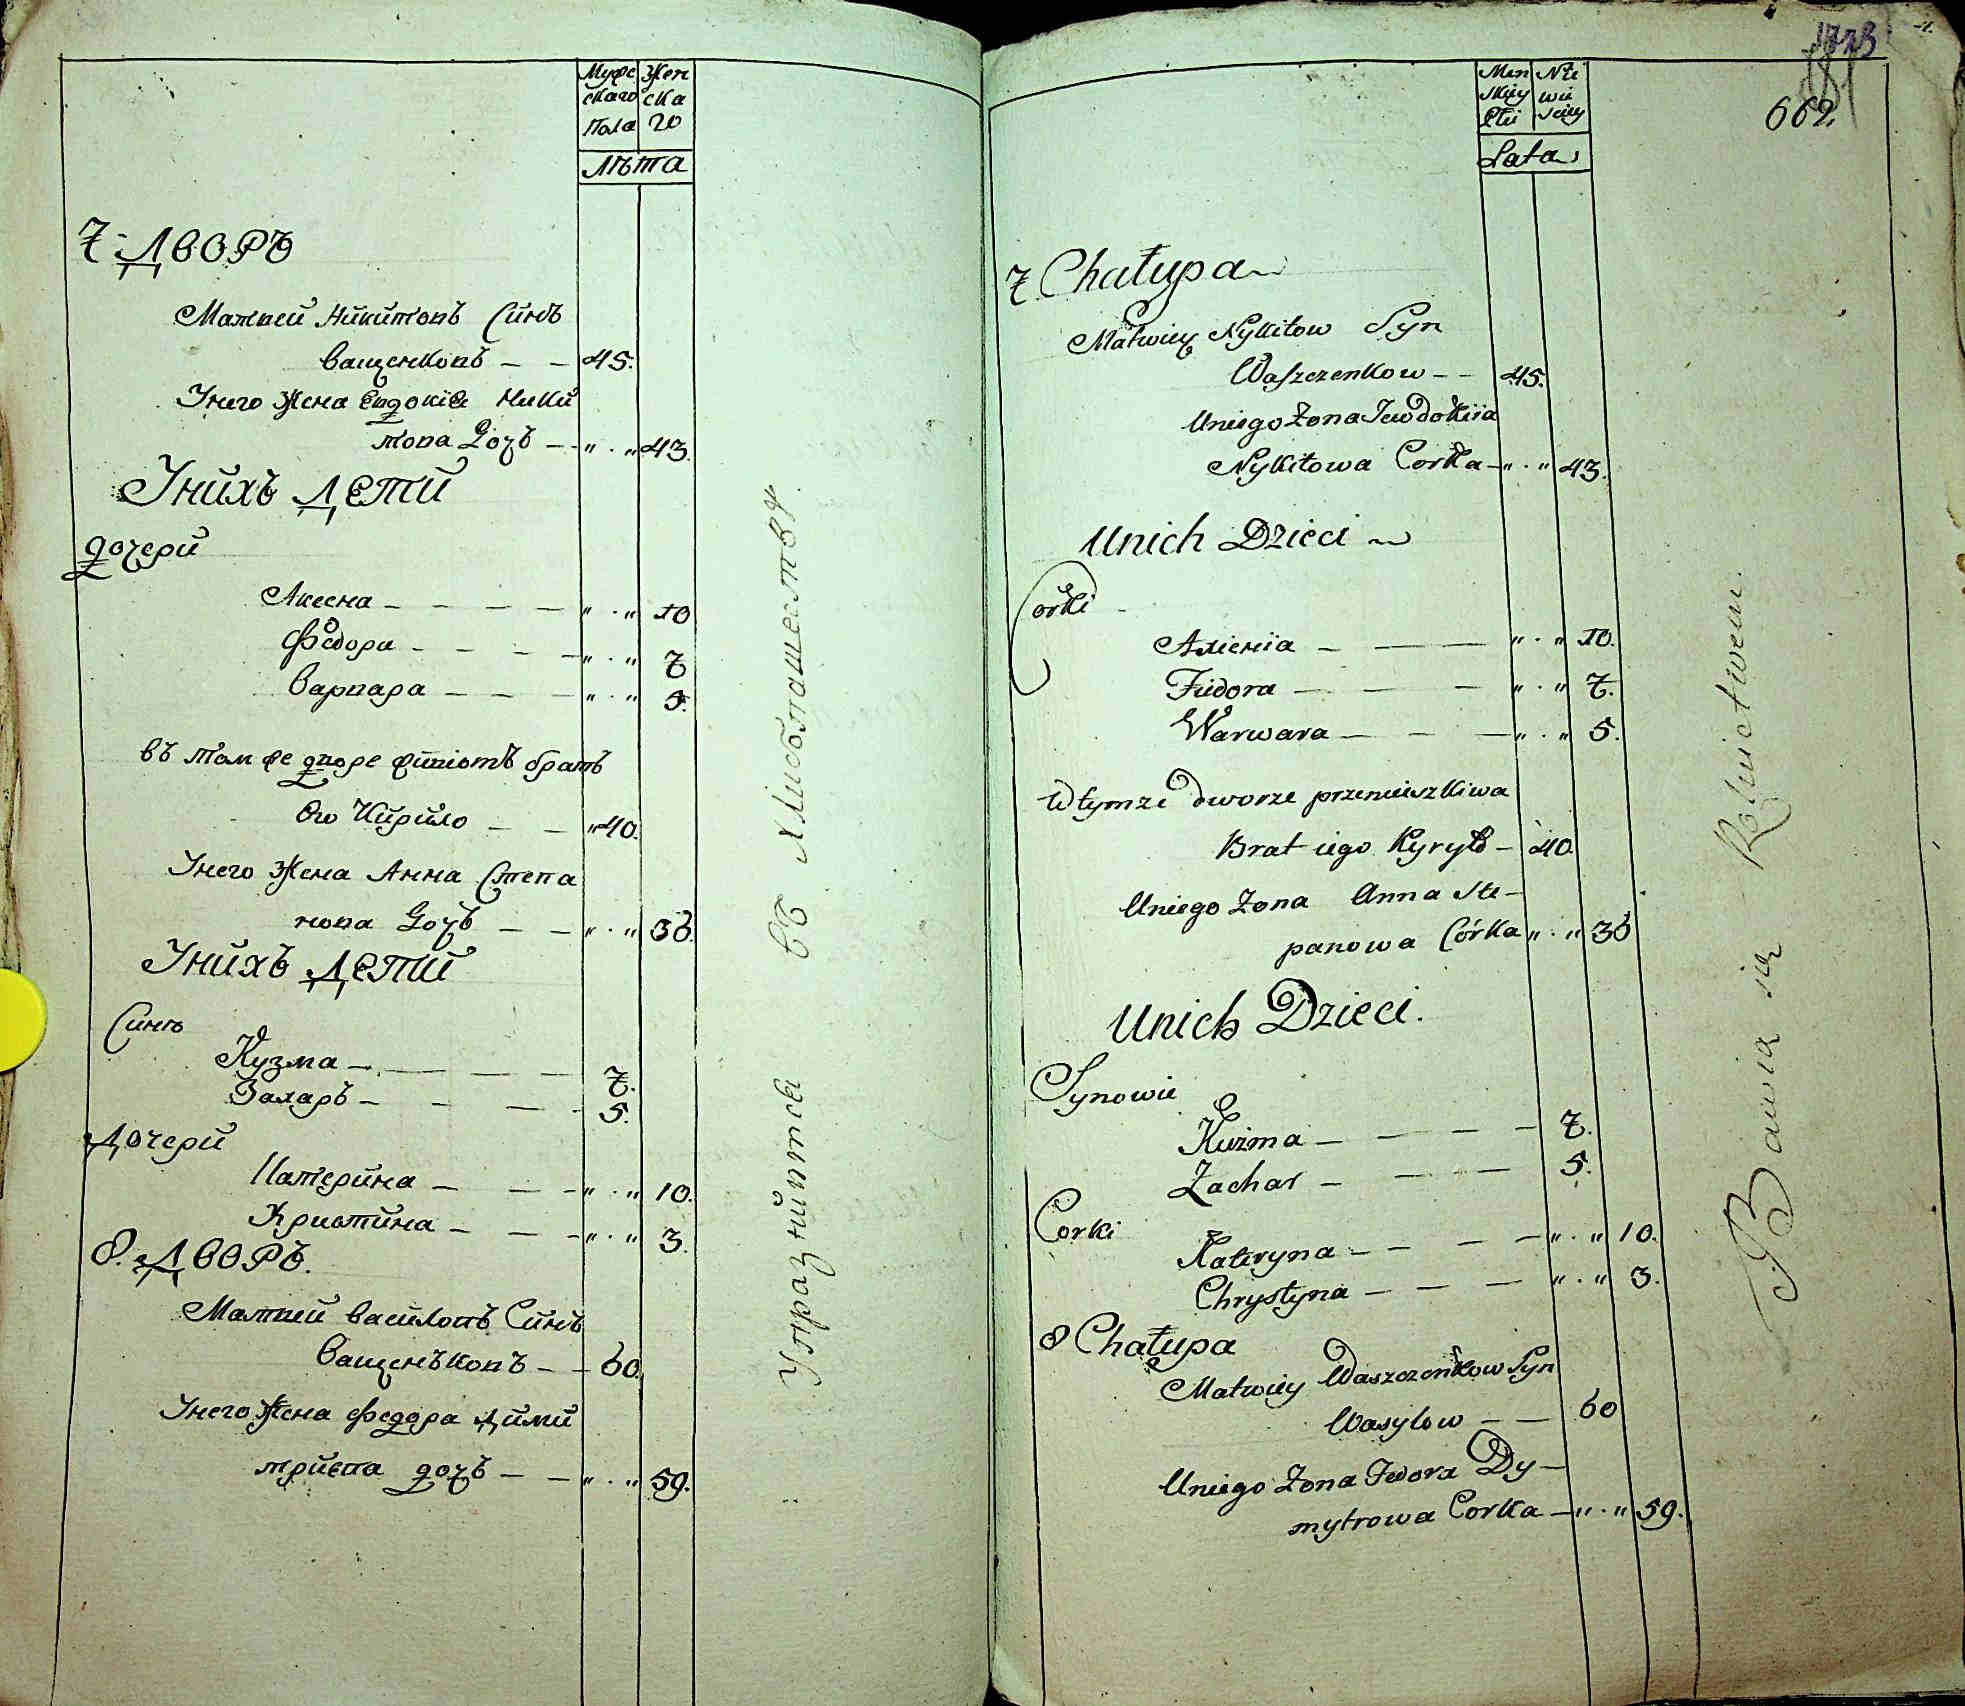 Муже Жен
скаго ска
Пола го
Лѣта
7 ДВОРЪ
Матвей Никитовъ Синъ
Ващенковъ – – 45.
Унего Жена Евдокіе Ники
това Дочъ – „ . „ 43.
Унихъ ДЕТИ
дочери
Аксена – – – – „ . „ 10
Федора – – – – „ . „ 7
Варвара – – – „ . „ 5.
въ том же дворе живіотъ братъ
Его Кирило – – „ 40.
Унего Жена Анна Степа
нова Дочъ – – „ . „ 36.
Унихъ ДЕТИ
Синъ
Кузма – – – – 7.
Захаръ – – – – 5.
Дочери
Катерина – – – „ . „ 10.
Христина – – – „ . „ 3.
8. ДВОРЪ.
Матвей Василовъ Синъ
Ващенъковъ – – 60.
Унего Жена Федора Дими
триева дочъ – – „ . „ 59.
Упразниттса въ Хлиболашеству.
1823
662.
Men Nie
skiey wie
Płci sciey
Lata
7 Chałupa
Matwiey Nykitow Syn
Waszczenkow – – 45.
Uniego Zona Jewdokiia
Nykitowa Corka – „ . „ 43.
Unich Dzieci
Corki
Axieniia – – – „ . „ 10.
Fiedora – – – „ . „ 7.
Warwara – – – „ . „ 5.
W tymze dworze przemieszkiwa
Brat iego Kyryło – 40.
Uniego Zona Anna Ste-
panowa Córka „ . „ 36
Unich Dzieci.
Synowie
Kuzma – – – – 7.
Zachar – – – – 5.
Corki
Kateryna – – – – „ . „ 10.
Chrystyna – – – „ . „ 3.
8 Chałupa
Matwiey Waszczenkow Syn
Wasylow – – 60
Uniego Zona Fedora Dy-
mytrowa Corka – „ . „ 59.
Bawia się Rolnictwem.